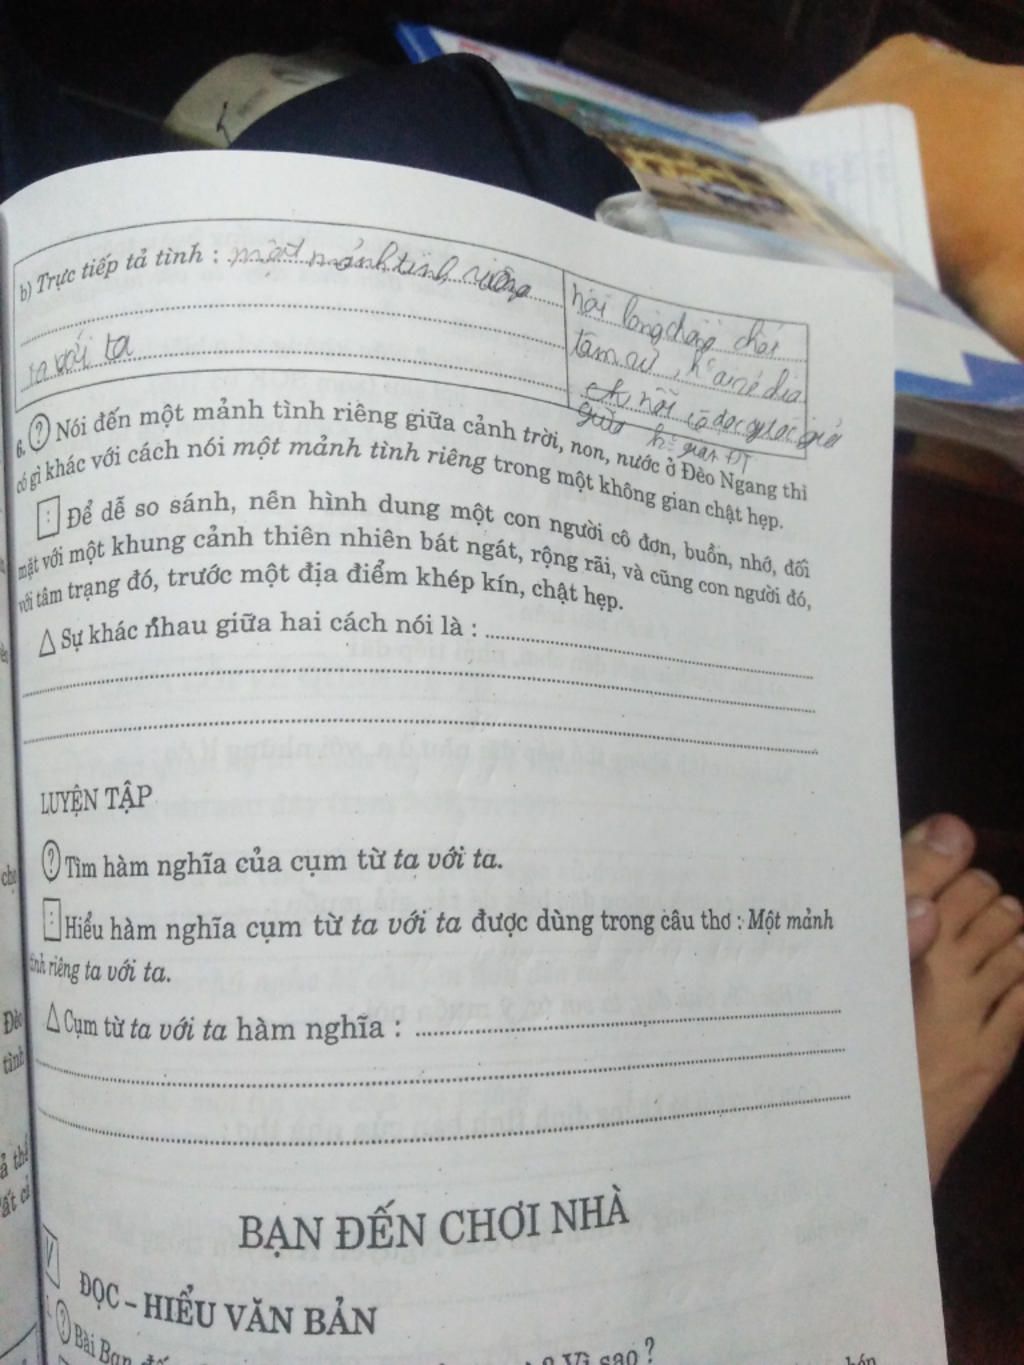 b) Trực tiếp tả tình : một mảnh tình riêng
ta với ta
nỗi lòng
tâm sự
6. ? Nói đến một mảnh tình riêng giữa cảnh trời, non, nước ở Đèo Ngang thì
có gì khác với cách nói một mảnh tình riêng trong một không gian chật hẹp.
Để dễ so sánh, nên hình dung một con người cô đơn, buồn, nhớ, đối
mặt với một khung cảnh thiên nhiên bát ngát, rộng rãi, và cũng con người đó,
với tâm trạng đó, trước một địa điểm khép kín, chật hẹp.
△ Sự khác nhau giữa hai cách nói là :
LUYỆN TẬP
? Tìm hàm nghĩa của cụm từ ta với ta.
Hiểu hàm nghĩa cụm từ ta với ta được dùng trong câu thơ : Một mảnh
tình riêng ta với ta.
△ Cụm từ ta với ta hàm nghĩa :
BẠN ĐẾN CHƠI NHÀ
ĐỌC - HIỂU VĂN BẢN
? Bài Bạn Vì sao ?